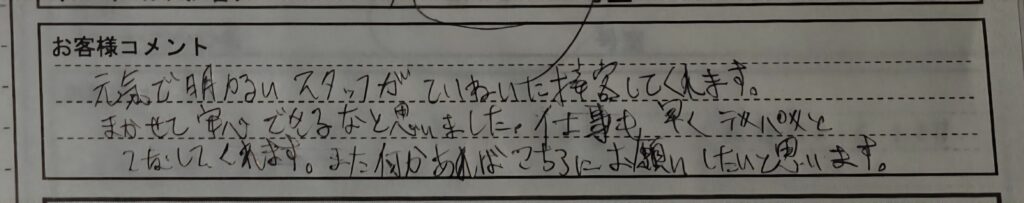 お客様コメント
元気で明かるいスタッフがていねいに接客してくれます。
まかせて安心できるなと思いました。仕事も早くテキパキと
こなしてくれます。また何かあればこちらにお願いしたいと思います。